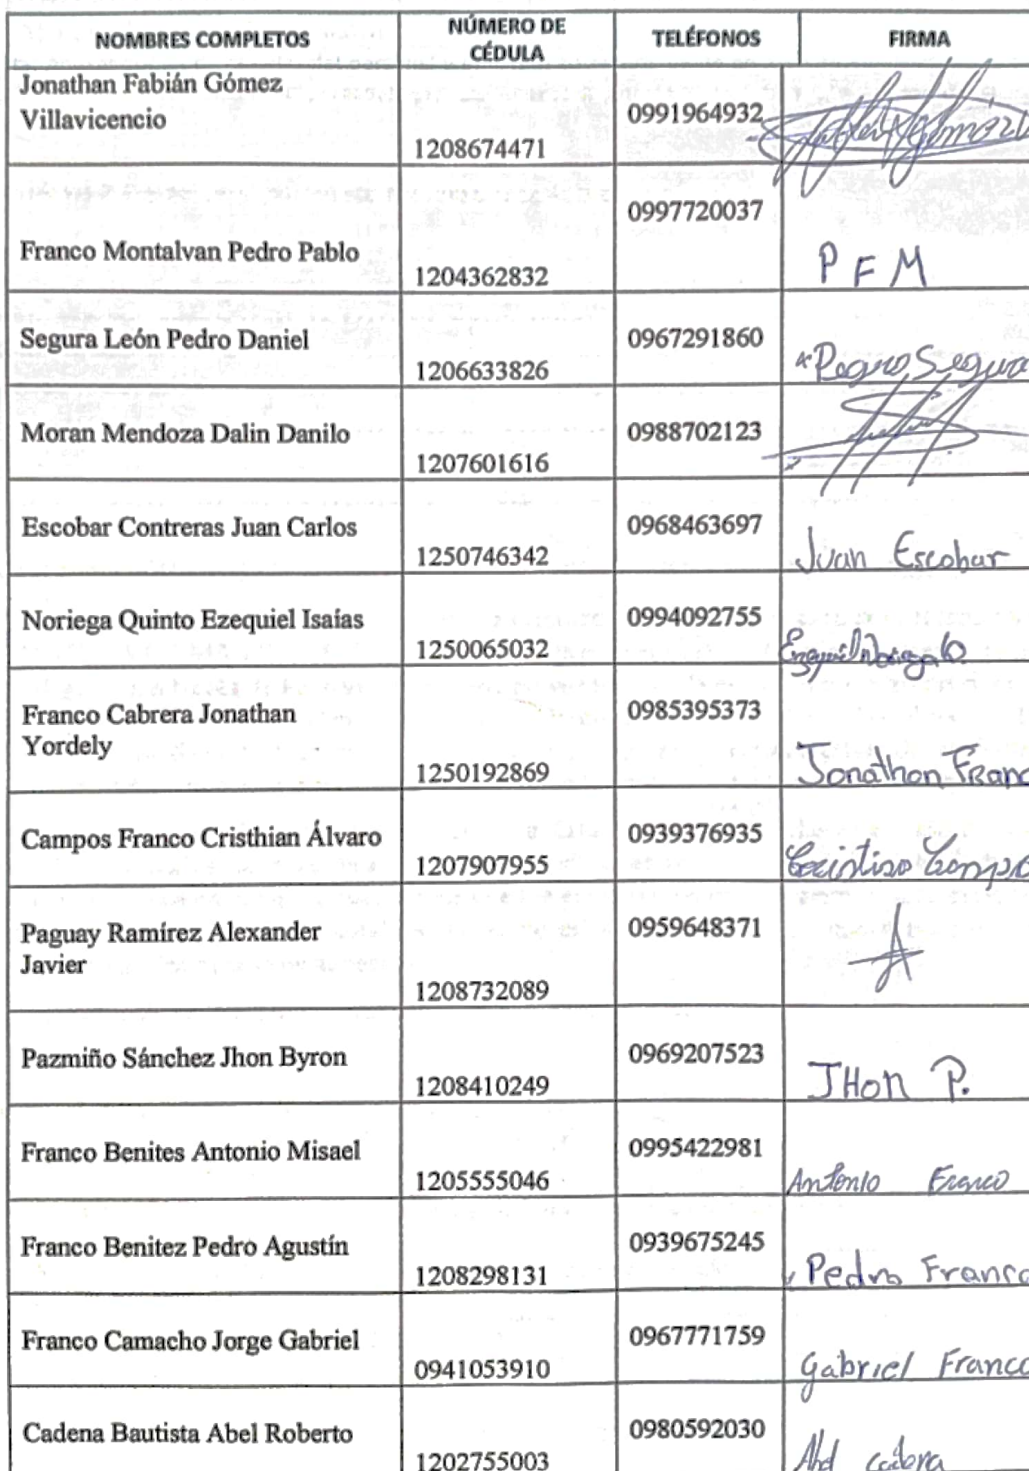 NOMBRES COMPLETOS NÚMERO DE CÉDULA TELÉFONOS FIRMA
Jonathan Fabián Gómez
Villavicencio
1208674471 0991964932
Franco Montalvan Pedro Pablo 1204362832 0997720037 P F M
Segura León Pedro Daniel 1206633826 0967291860 Pedro Segura
Moran Mendoza Dalin Danilo 1207601616 0988702123
Escobar Contreras Juan Carlos 1250746342 0968463697 Juan Escobar
Noriega Quinto Ezequiel Isaías 1250065032 0994092755 Ezequiel Noriega Q.
Franco Cabrera Jonathan
Yordely
1250192869 0985395373 Jonathan Franc
Campos Franco Cristhian Álvaro 1207907955 0939376935
Paguay Ramírez Alexander
Javier
1208732089 0959648371
Pazmiño Sánchez Jhon Byron 1208410249 0969207523 JHon P.
Franco Benites Antonio Misael 1205555046 0995422981 Antonio Franco
Franco Benitez Pedro Agustín 1208298131 0939675245 Pedro Franco
Franco Camacho Jorge Gabriel 0941053910 0967771759 Gabriel Franco
Cadena Bautista Abel Roberto 1202755003 0980592030